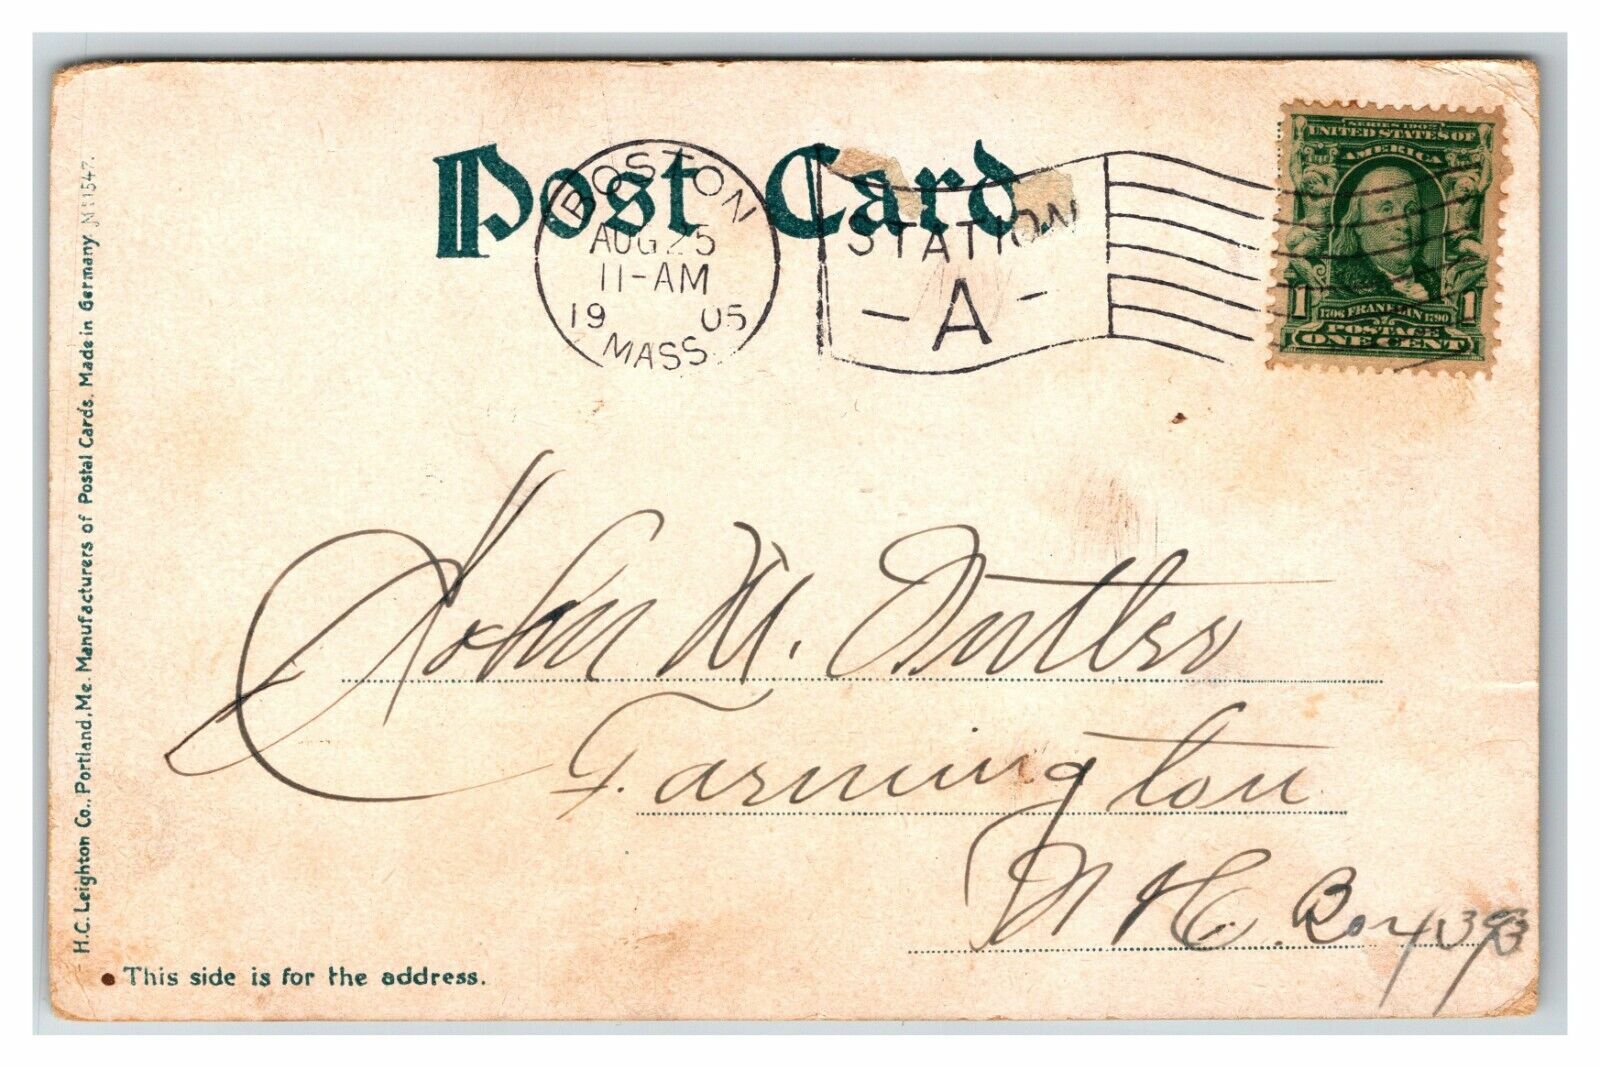 Post Card
BOSTON
AUG 25
11-AM
19 05
MASS.
STATION
-A-
SERIES 1902
UNITED STATES OF
AMERICA
1 1
1706 FRANKLIN 1790
POSTAGE
ONE CENT
H.C. Leighton Co., Portland, Me. Manufacturers of Postal Cards. Made in Germany No 1547.
John M.
Farmington
N H. Box
This side is for the address.